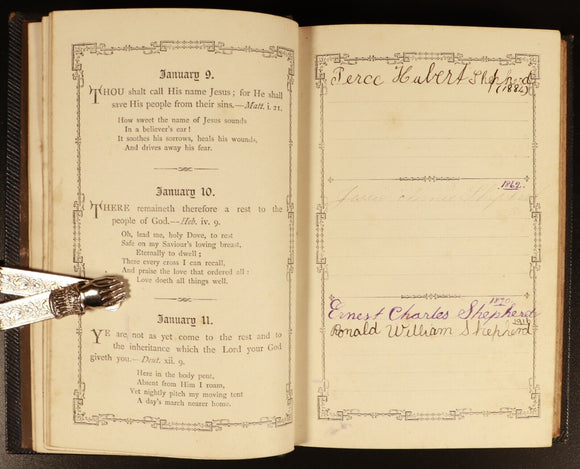 January 9.
THOU shalt call His name Jesus; for He shall
save His people from their sins.—Matt. i. 21.
How sweet the name of Jesus sounds
In a believer's ear!
It soothes his sorrows, heals his wounds,
And drives away his fear.
January 10.
THERE remaineth therefore a rest to the
people of God.—Heb. iv. 9.
Oh, lead me, holy Dove, to rest
Safe on my Saviour's loving breast,
Eternally to dwell;
There every cross I can recall,
And praise the love that ordered all:
Love doeth all things well.
January 11.
YE are not as yet come to the rest and to
the inheritance which the Lord your God
giveth you.—Deut. xii. 9.
Here in the body pent,
Absent from Him I roam,
Yet nightly pitch my moving tent
A day's march nearer home.
Perce Hubert Shepherd
(1884)
1862
Jessie
1870
Ernest Charles Shepherd
Ronald William Shepherd